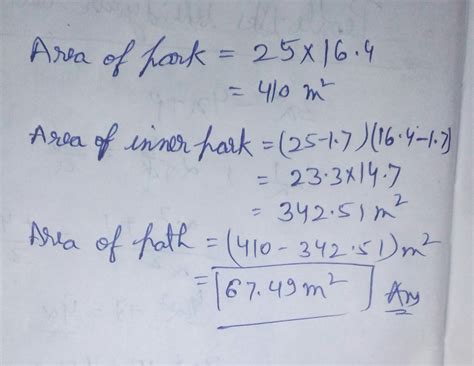 Area of park = 25×16.4
= 410 m²
Area of inner park = (25-1.7)(16.4-1.7)
= 23.3×14.7
= 342.51 m²
Area of path = (410 - 342.51)m²
= 67.49 m² Ans